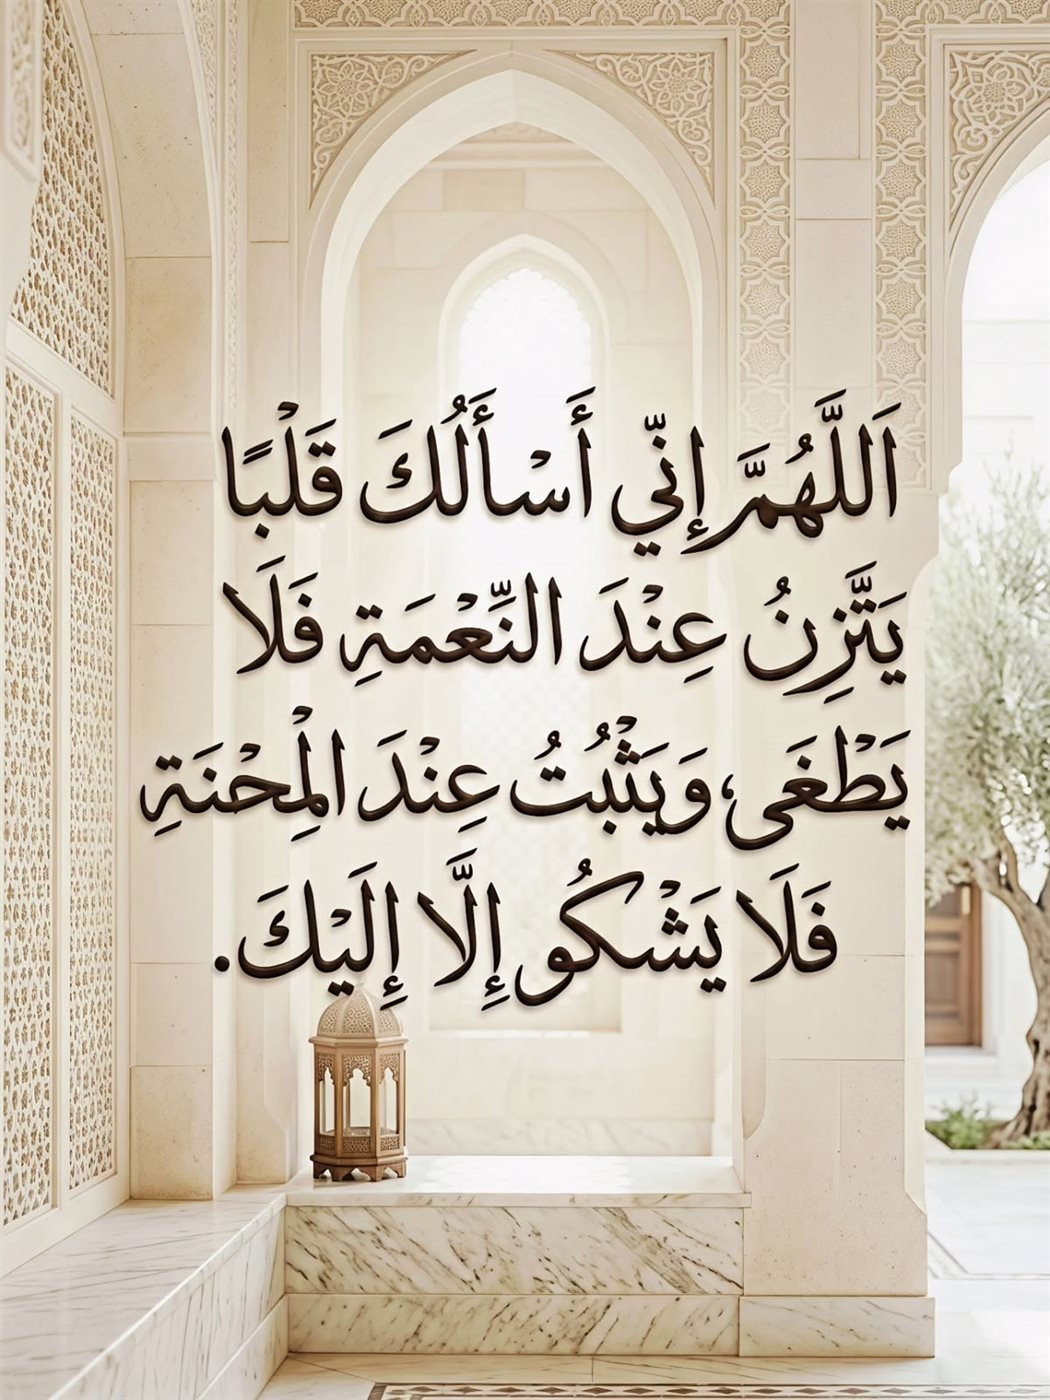 اَللَّهُمَّ إِنِّي أَسْأَلُكَ قَلْبًا
يَتَّزِنُ عِنْدَ النِّعْمَةِ فَلَا
يَطْغَى، وَيَثْبُتُ عِنْدَ الْمِحْنَةِ
فَلَا يَشْكُو إِلَّا إِلَيْكَ.